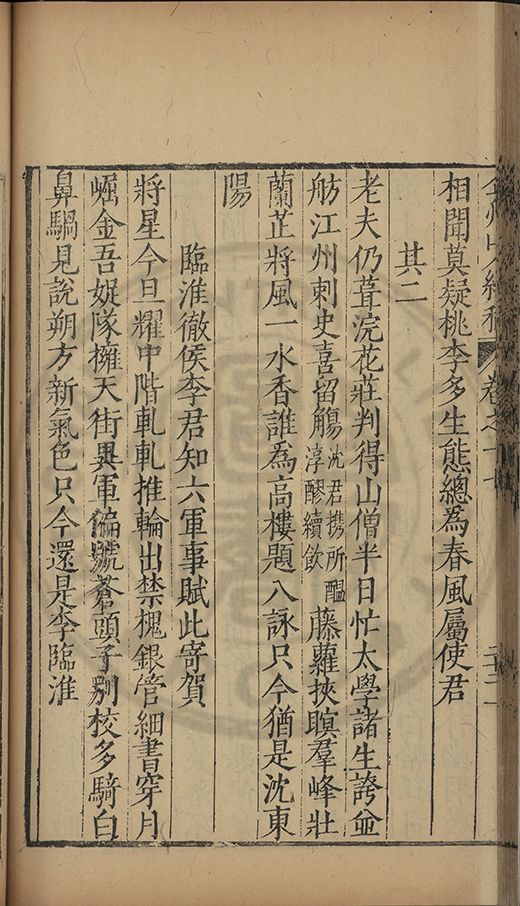 弇州山人續稿 卷之十七 二十二
相聞莫疑桃李多生態總為春風屬使君
其二
老夫仍葺浣花莊判得山僧半日忙太學諸生誇並
舫江州刺史喜留觴沈君携所醞淳醪續飲藤蘿挾瞑羣峰壯
蘭芷將風一水香誰為高樓題八詠只今猶是沈東
陽
臨淮徹侯李君知六軍事賦此寄賀
將星今旦耀中階軋軋推輪出禁槐銀管細書穿月
崛金吾娖隊擁天街異軍偏號蒼頭子别校多騎白
鼻騧見說朔方新氣色只今還是李臨淮